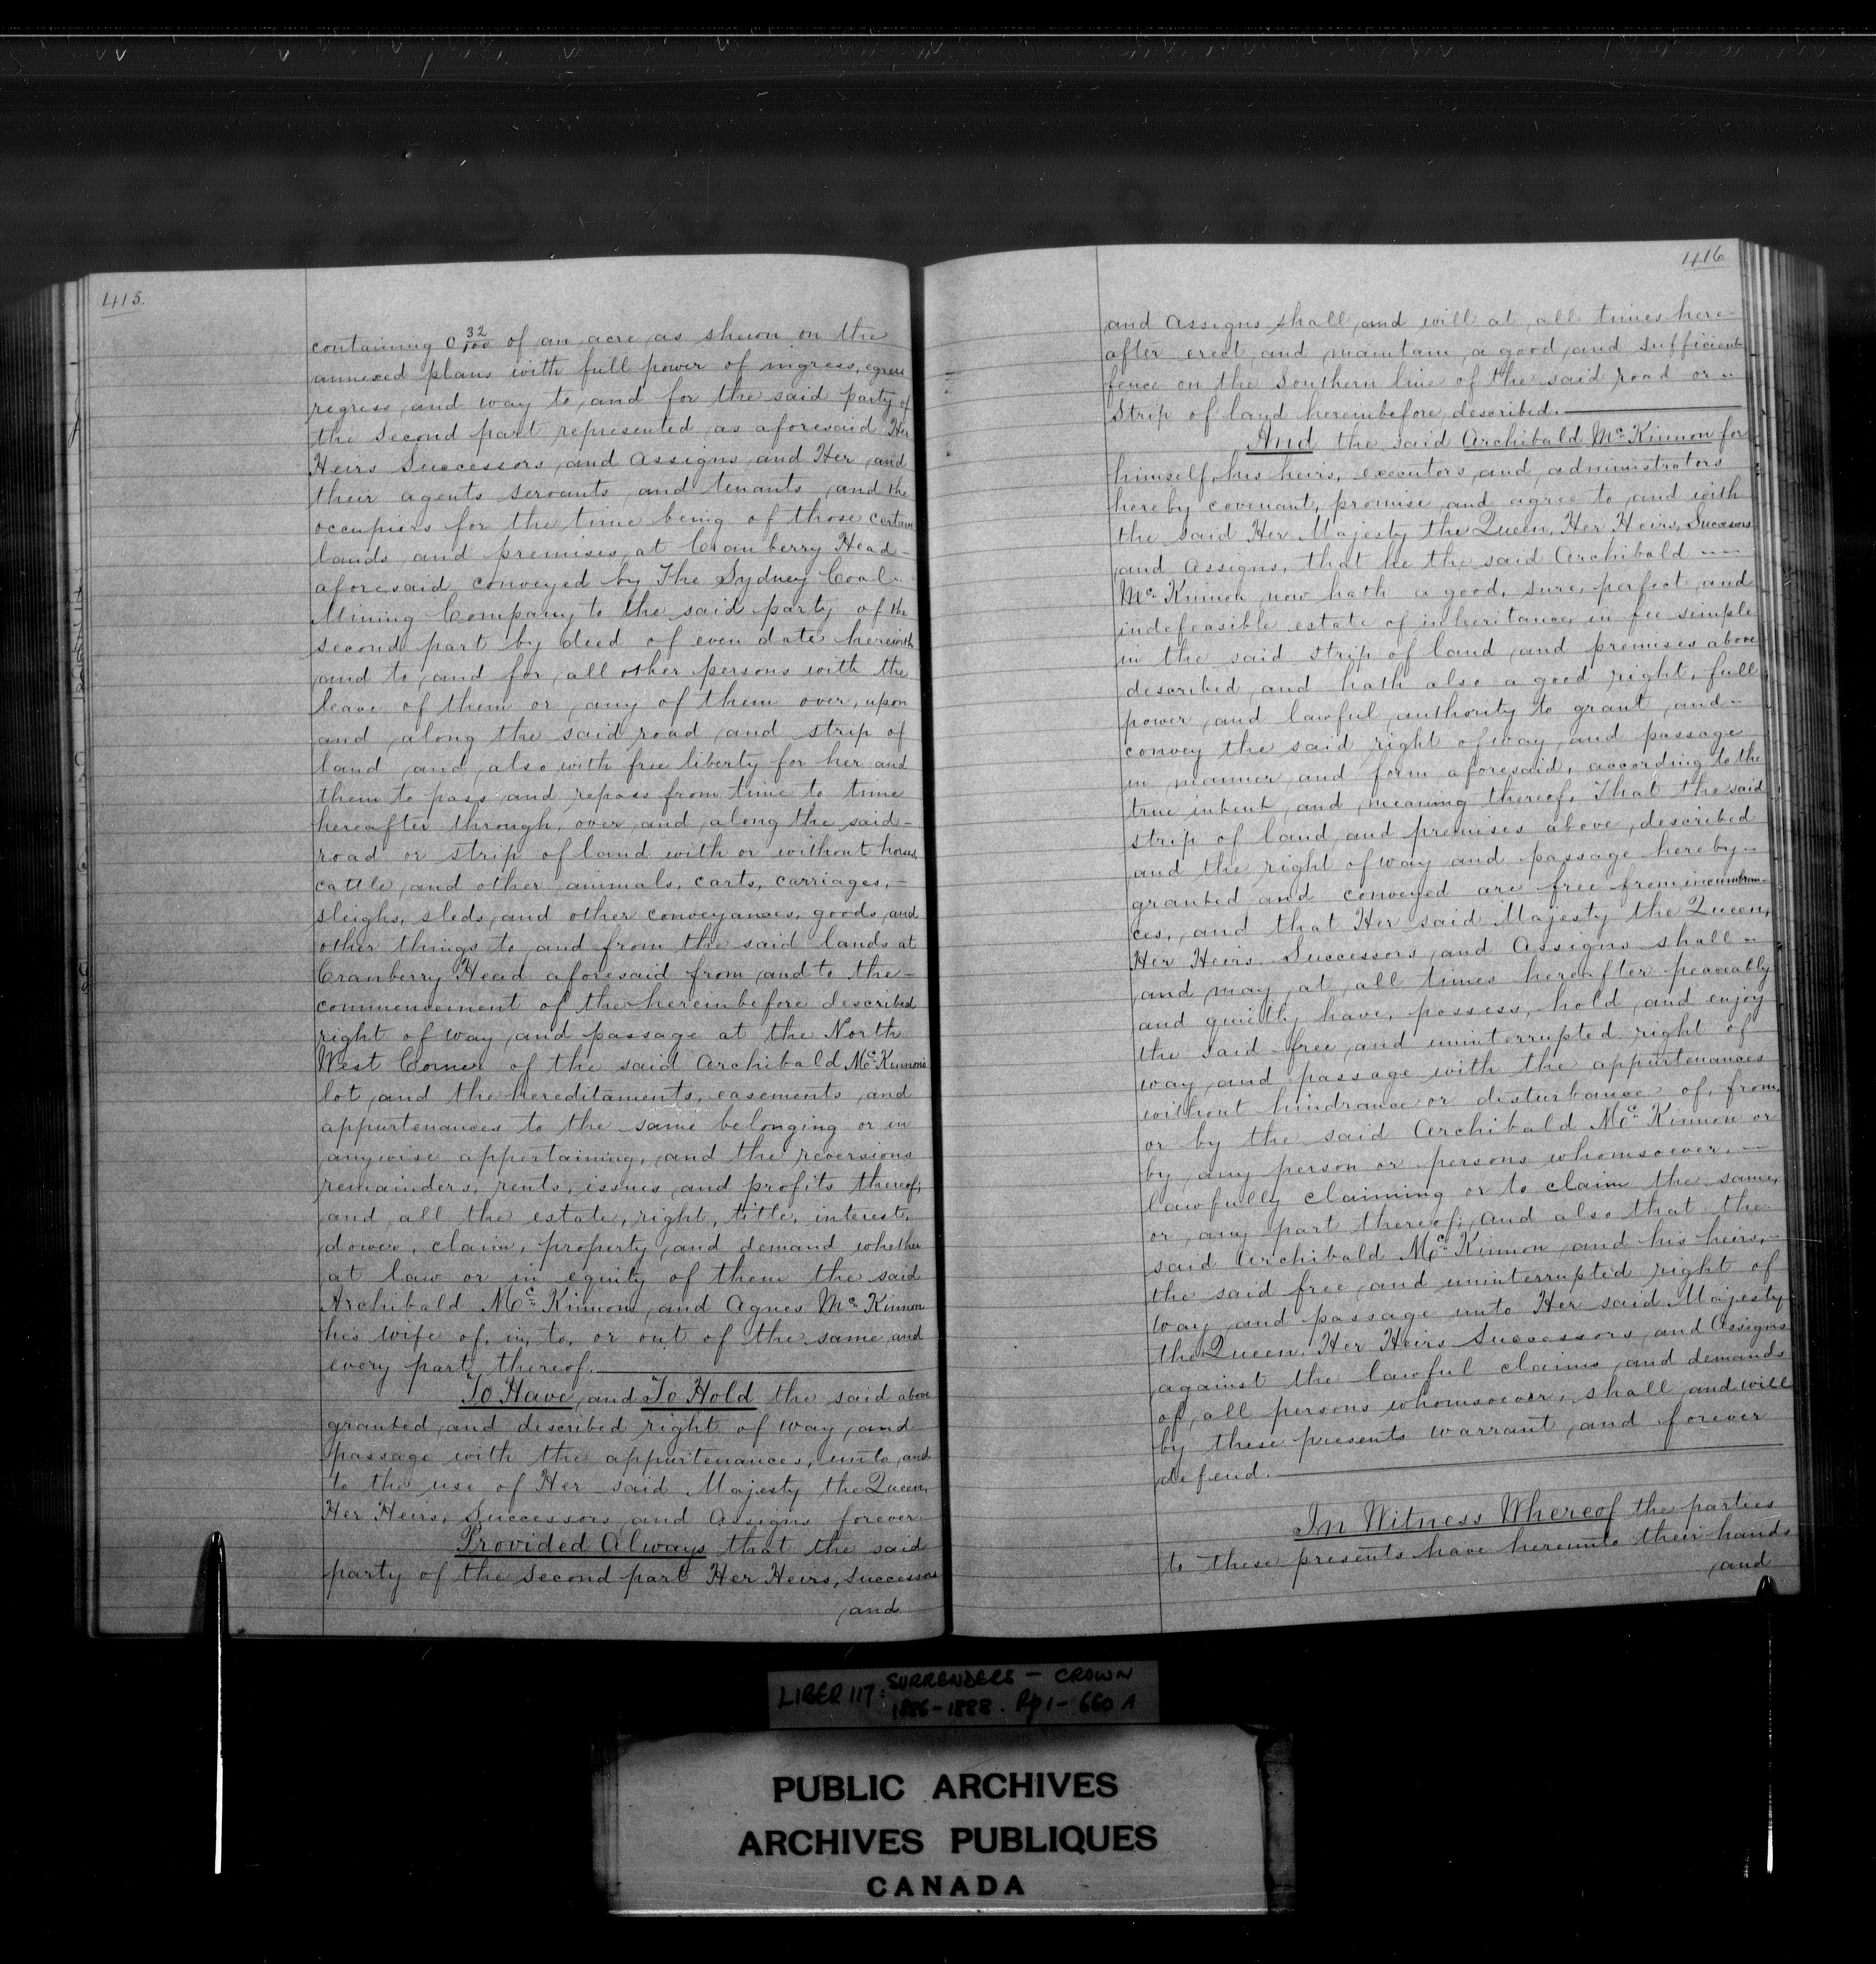 415.
containing 0 32/100 of an acre as shewn on the
annexed plans with full power of ingress, egress
regress and way to and for the said party of
the second part represented as aforesaid Her
Heirs Successors and Assigns and Her and
their agents servants and tenants and the
occupiers for the time being of those certain
lands and premises at Cranberry Head -
aforesaid conveyed by The Sydney Coal -
Mining Company to the said party of the
second part by deed of even date herewith
and to and for all other persons with the
leave of them or any of them over, upon
and along the said road and strip of
land and also with free liberty for her and
them to pass and repass from time to time
hereafter through, over and along the said -
road or strip of land with or without horses,
cattle and other animals, carts, carriages, -
sleighs, sleds, and other conveyances, goods and
other things to and from the said lands at
Cranberry Head aforesaid from and to the -
commencement of the hereinbefore described
right of way and passage at the North
West Corner of the said Archibald McKinnon's
lot and the hereditaments, easements and
appurtenances to the same belonging or in
anywise appertaining, and the reversions
remainders, rents, issues and profits thereof,
and all the estate, right, title, interest,
dower, claim, property and demand whether
at law or in equity of them the said
Archibald McKinnon and Agnes McKinnon
his wife of, in, to, or out of the same and
every part thereof.
To Have and To Hold the said above
granted and described right of way and
passage with the appurtenances, unto and
to the use of Her said Majesty the Queen,
Her Heirs, Successors and Assigns forever.
Provided Always that the said
party of the second part Her Heirs, Successors
and
416
and Assigns shall and will at all times here-
after erect and maintain a good and sufficient
fence on the Southern line of the said road or -
Strip of land hereinbefore described.
And the said Archibald McKinnon for
himself, his heirs, executors and administrators
hereby covenant, promise and agree to and with
the said Her Majesty the Queen, Her Heirs, Successors
and Assigns, that he the said Archibald --
McKinnon now hath a good, sure, perfect and
indefeasible estate of inheritance in fee simple
in the said strip of land and premises above
described and hath also a good right, full
power and lawful authority to grant and -
convey the said right of way and passage
in manner and form aforesaid, according to the
true intent and meaning thereof, That the said
strip of land and premises above described
and the right of way and passage hereby -
granted and conveyed are free from incumbran-
ces, and that Her said Majesty the Queen,
Her Heirs, Successors and Assigns shall -
and may at all times hereafter peaceably
and quietly have, possess, hold and enjoy
the said free and uninterrupted right of
way and passage with the appurtenances
without hindrance or disturbance of, from,
or by the said Archibald McKinnon or
by any person or persons whomsoever, -
lawfully claiming or to claim the same,
or any part thereof; and also that the
said Archibald McKinnon and his heirs, -
the said free and uninterrupted right of
way and passage unto Her said Majesty
the Queen, Her Heirs Successors and Assigns
against the lawful claims and demands
of all persons whomsoever, shall and will
by these presents warrant and forever
defend.
In Witness Whereof the parties
to these presents have hereunto their hands
and
LIBER 117: SURRENDERS - CROWN
1886-1888. Pp 1-660 A
PUBLIC ARCHIVES
ARCHIVES PUBLIQUES
CANADA